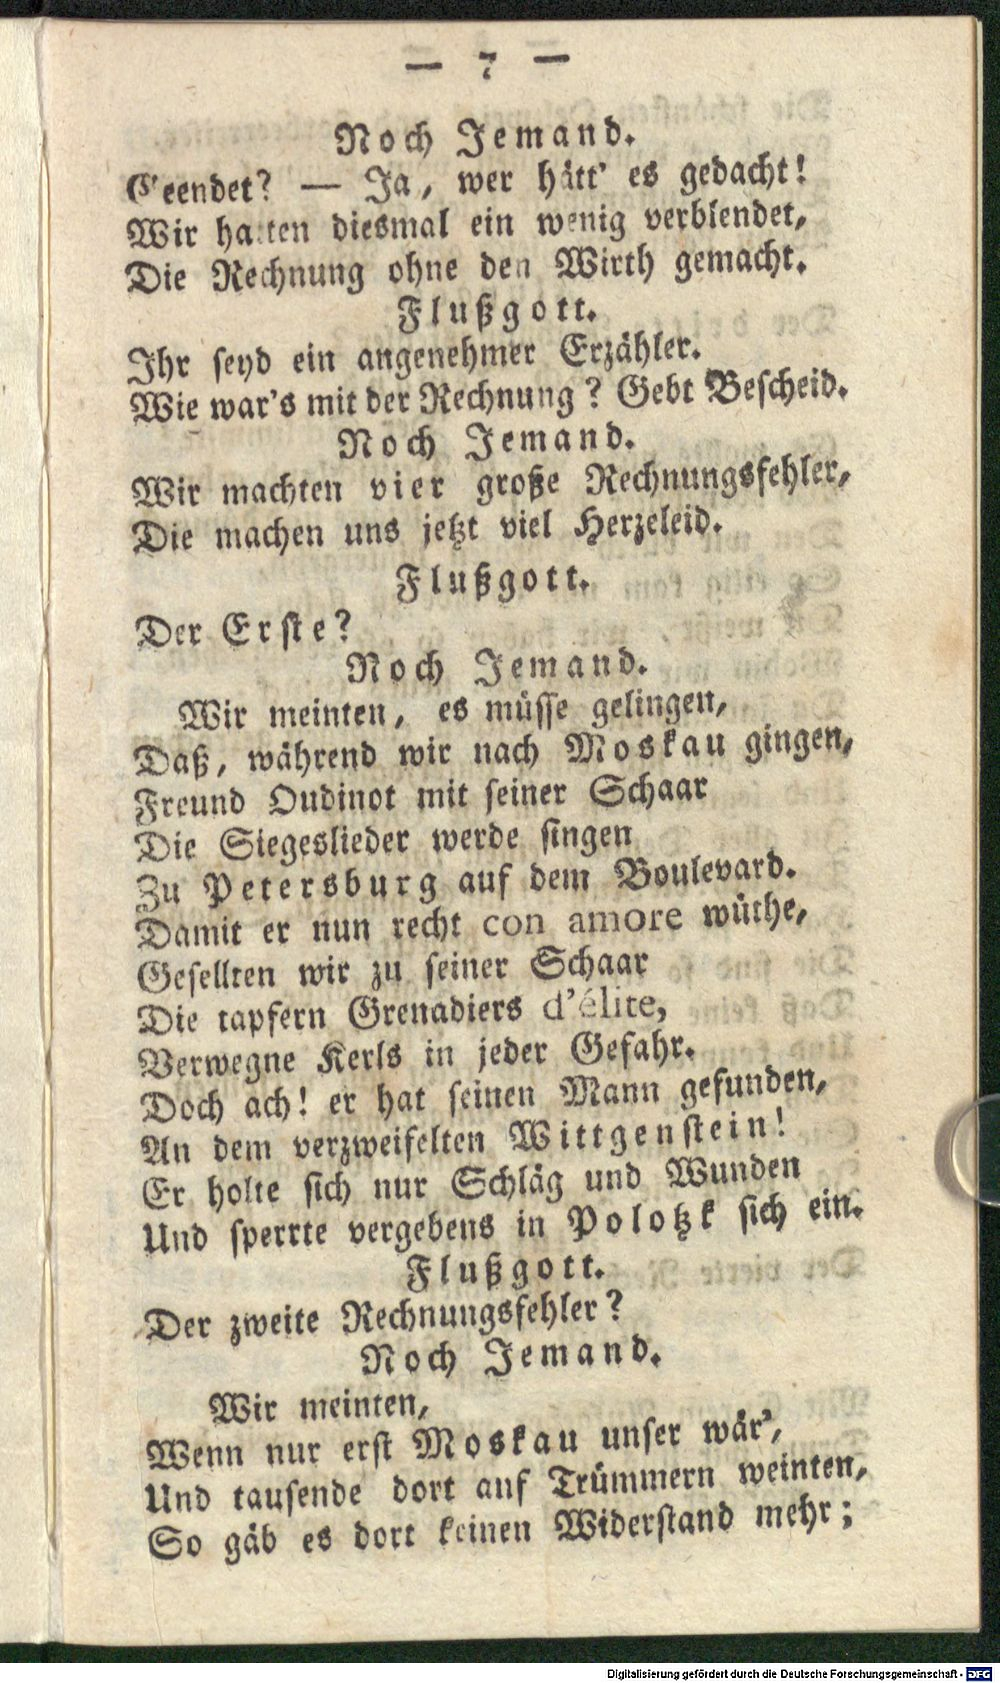 — 7 —
Noch Jemand.
Geendet? — Ja, wer hätt' es gedacht!
Wir hatten diesmal ein wenig verblendet,
Die Rechnung ohne den Wirth gemacht.
Flußgott.
Ihr seyd ein angenehmer Erzähler.
Wie war's mit der Rechnung? Gebt Bescheid.
Noch Jemand.
Wir machten vier große Rechnungsfehler,
Die machen uns jetzt viel Herzeleid.
Flußgott.
Der Erste?
Noch Jemand.
Wir meinten, es müsse gelingen,
Daß, während wir nach Moskau gingen,
Freund Oudinot mit seiner Schaar
Die Siegeslieder werde singen
Zu Petersburg auf dem Boulevard.
Damit er nun recht con amore wüthe,
Gesellten wir zu seiner Schaar
Die tapfern Grenadiers d'élite,
Verwegne Kerls in jeder Gefahr.
Doch ach! er hat seinen Mann gefunden,
An dem verzweifelten Wittgenstein!
Er holte sich nur Schläg und Wunden
Und sperrte vergebens in Polotzk sich ein.
Flußgott.
Der zweite Rechnungsfehler?
Noch Jemand.
Wir meinten,
Wenn nur erst Moskau unser wär',
Und tausende dort auf Trümmern weinten,
So gäb es dort keinen Widerstand mehr;
Digitalisierung gefördert durch die Deutsche Forschungsgemeinschaft - DFG